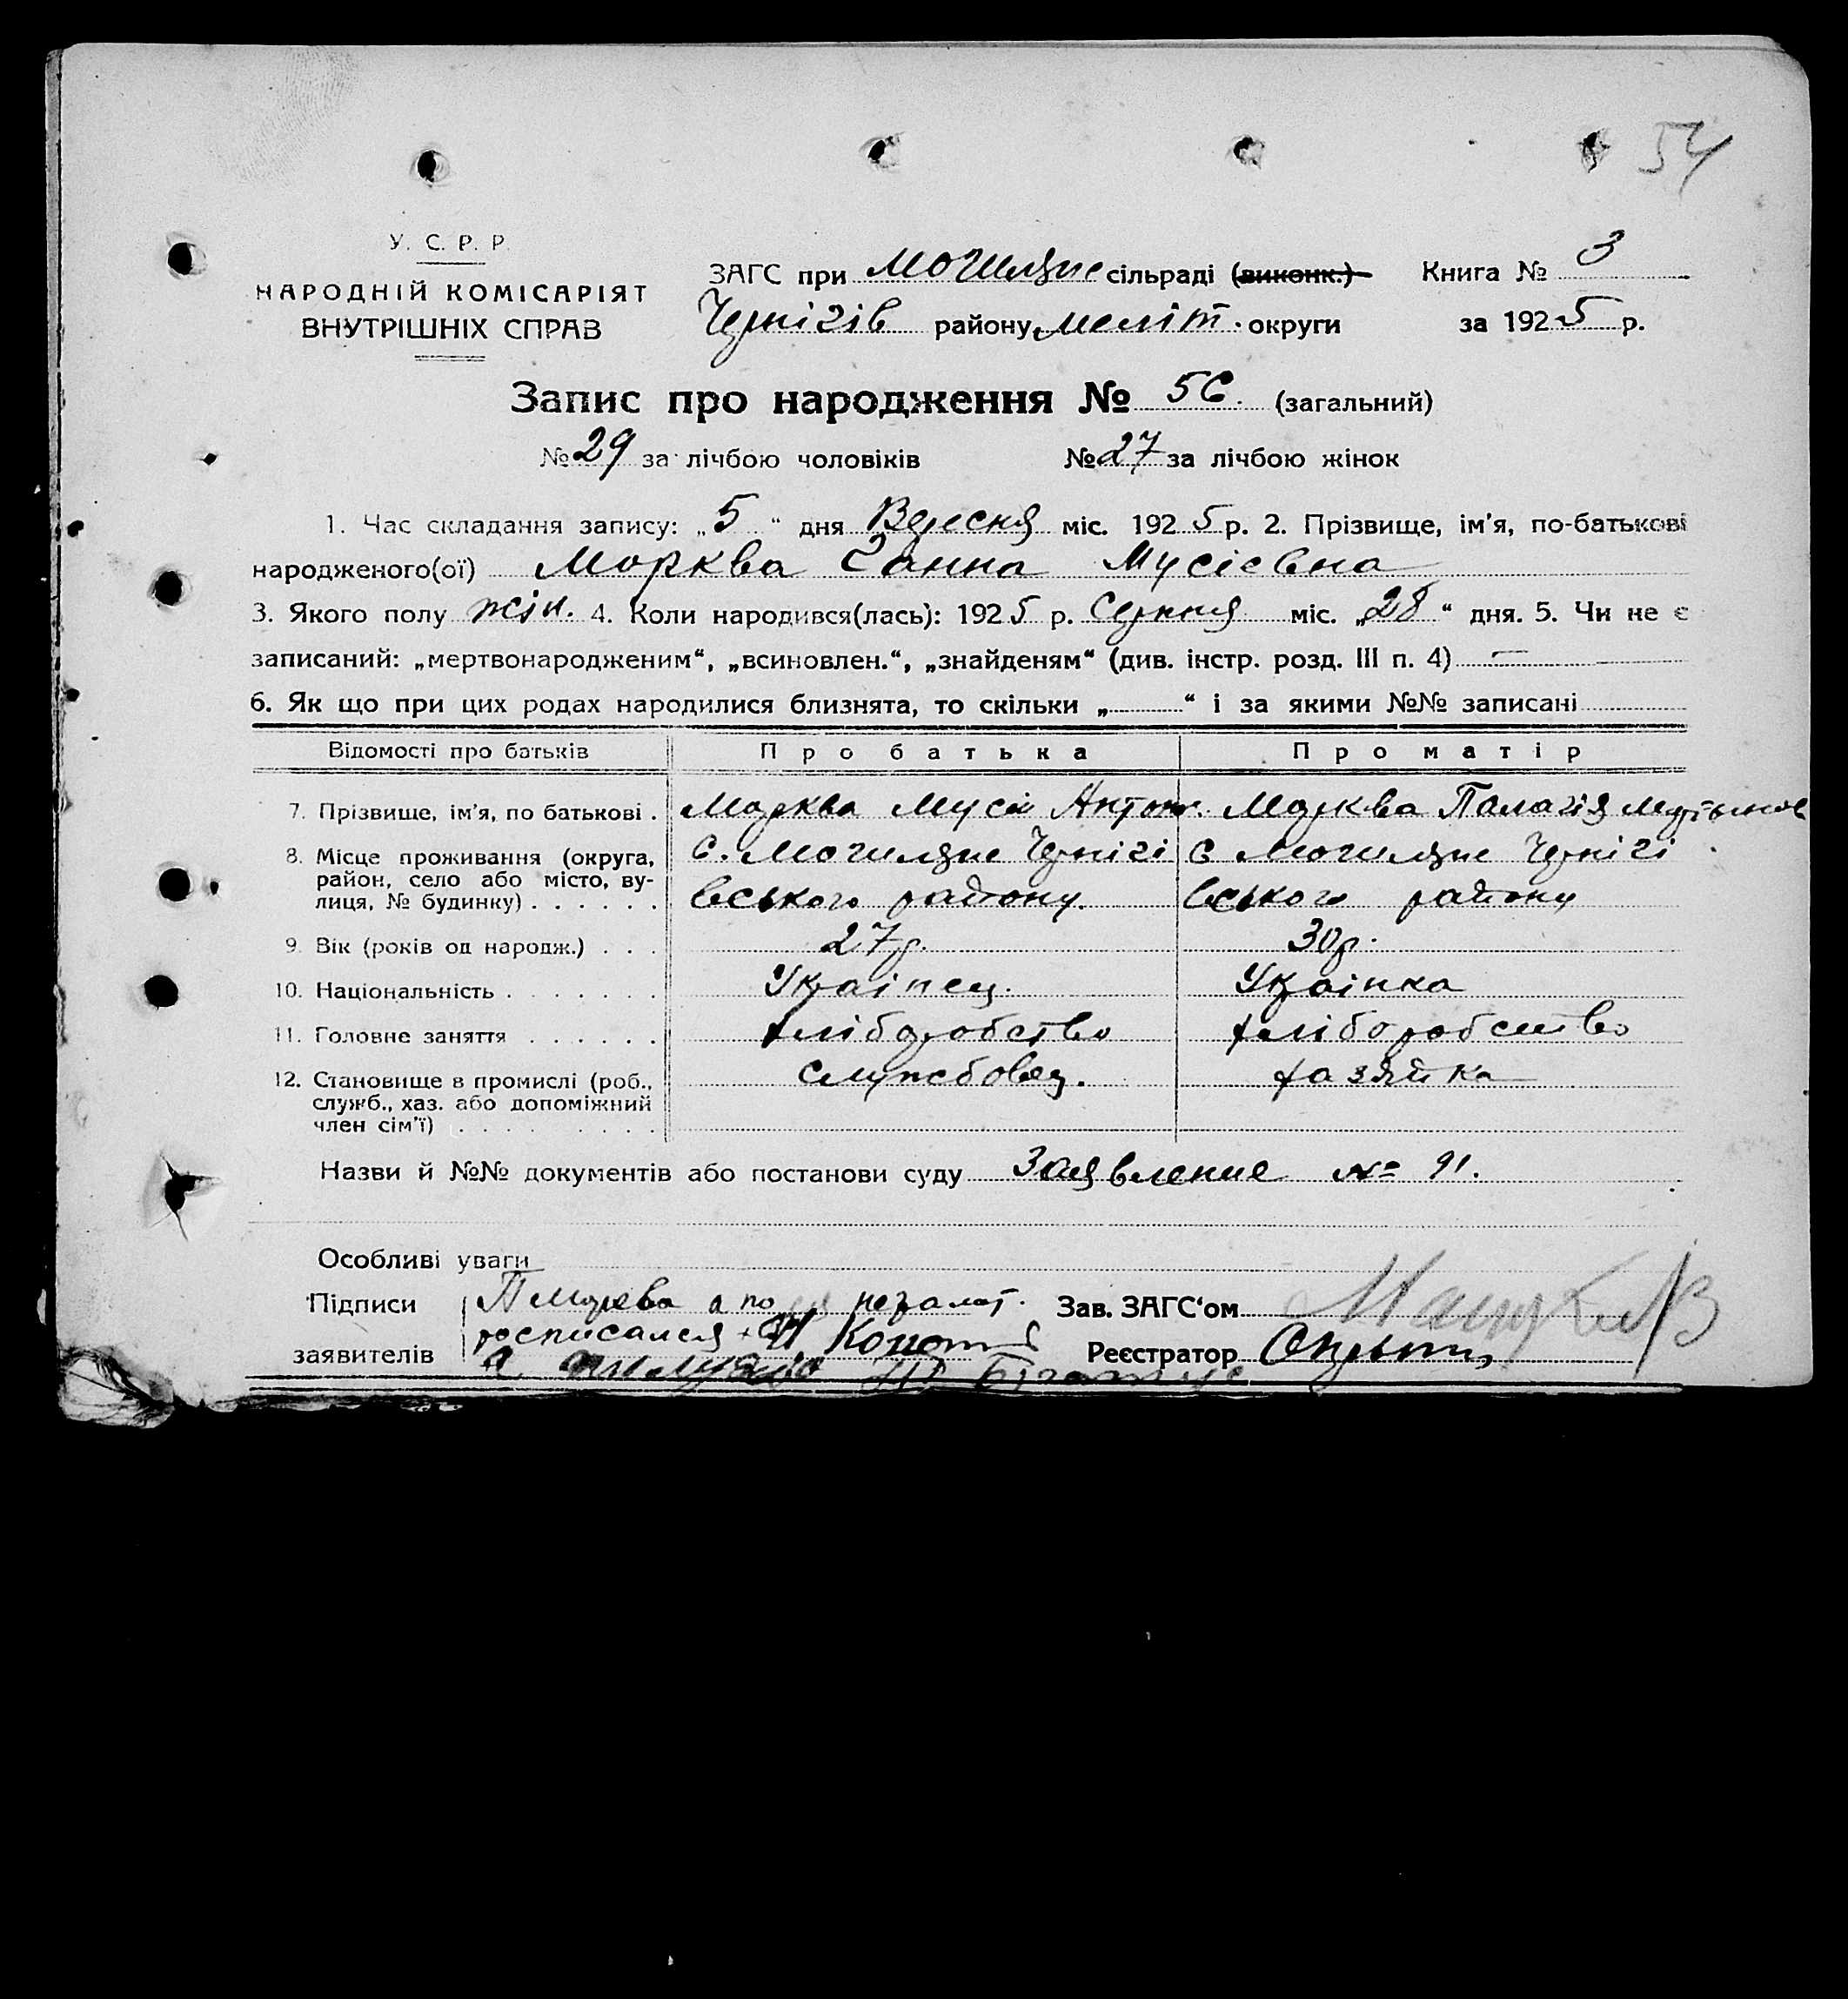 54
У. С. Р. Р.
НАРОДНІЙ КОМІСАРІЯТ
ВНУТРІШНІХ СПРАВ
ЗАГС при Могиляне сільраді (виконк.) Книга № 3
Чернігів району меліт. округи за 1925 р.
Запис про народження № 56. (загальний)
№ 29 за лічбою чоловіків № 27 за лічбою жінок
1. Час складання запису: „5“ дня Вересня міс. 1925 р. 2. Прізвище, ім'я, по-батькові
народженого(ої) Морква Ганна Мусієвна
3. Якого полу жін. 4. Коли народився(лась): 1925 р. Серпня міс. „28“ дня. 5. Чи не є
записаний: „мертвонародженим“, „всиновлен.“, „знайденям“ (див. інстр. розд. III п. 4) —
6. Як що при цих родах народилися близнята, то скільки „ “ і за якими №№ записані
Відомості про батьків Про батька Про матір
7. Прізвище, ім'я, по батькові . Морква Мусій Антон. Морква Палагія
8. Місце проживання (округа, с. Могиляне Чернігі с Могиляне Чернігі
район, село або місто, ву-
лиця, № будинку) . . . . . . вського району. вського району
9. Вік (років од народж.) . . . 27 р. 30 р.
10. Національність . . . . . . . Українец. Українка
11. Головне заняття . . . . . . хліборобство хліборобство
12. Становище в промислі (роб., службовец. хазяйка
служб., хаз. або допоміжний
член сім'ї) . . . . . . . . .
Назви й №№ документів або постанови суду Заявление № 91.
Особливі уваги
Підписи П Морква а по неграмот. Зав. ЗАГС'ом
росписался
заявителів Реєстратор